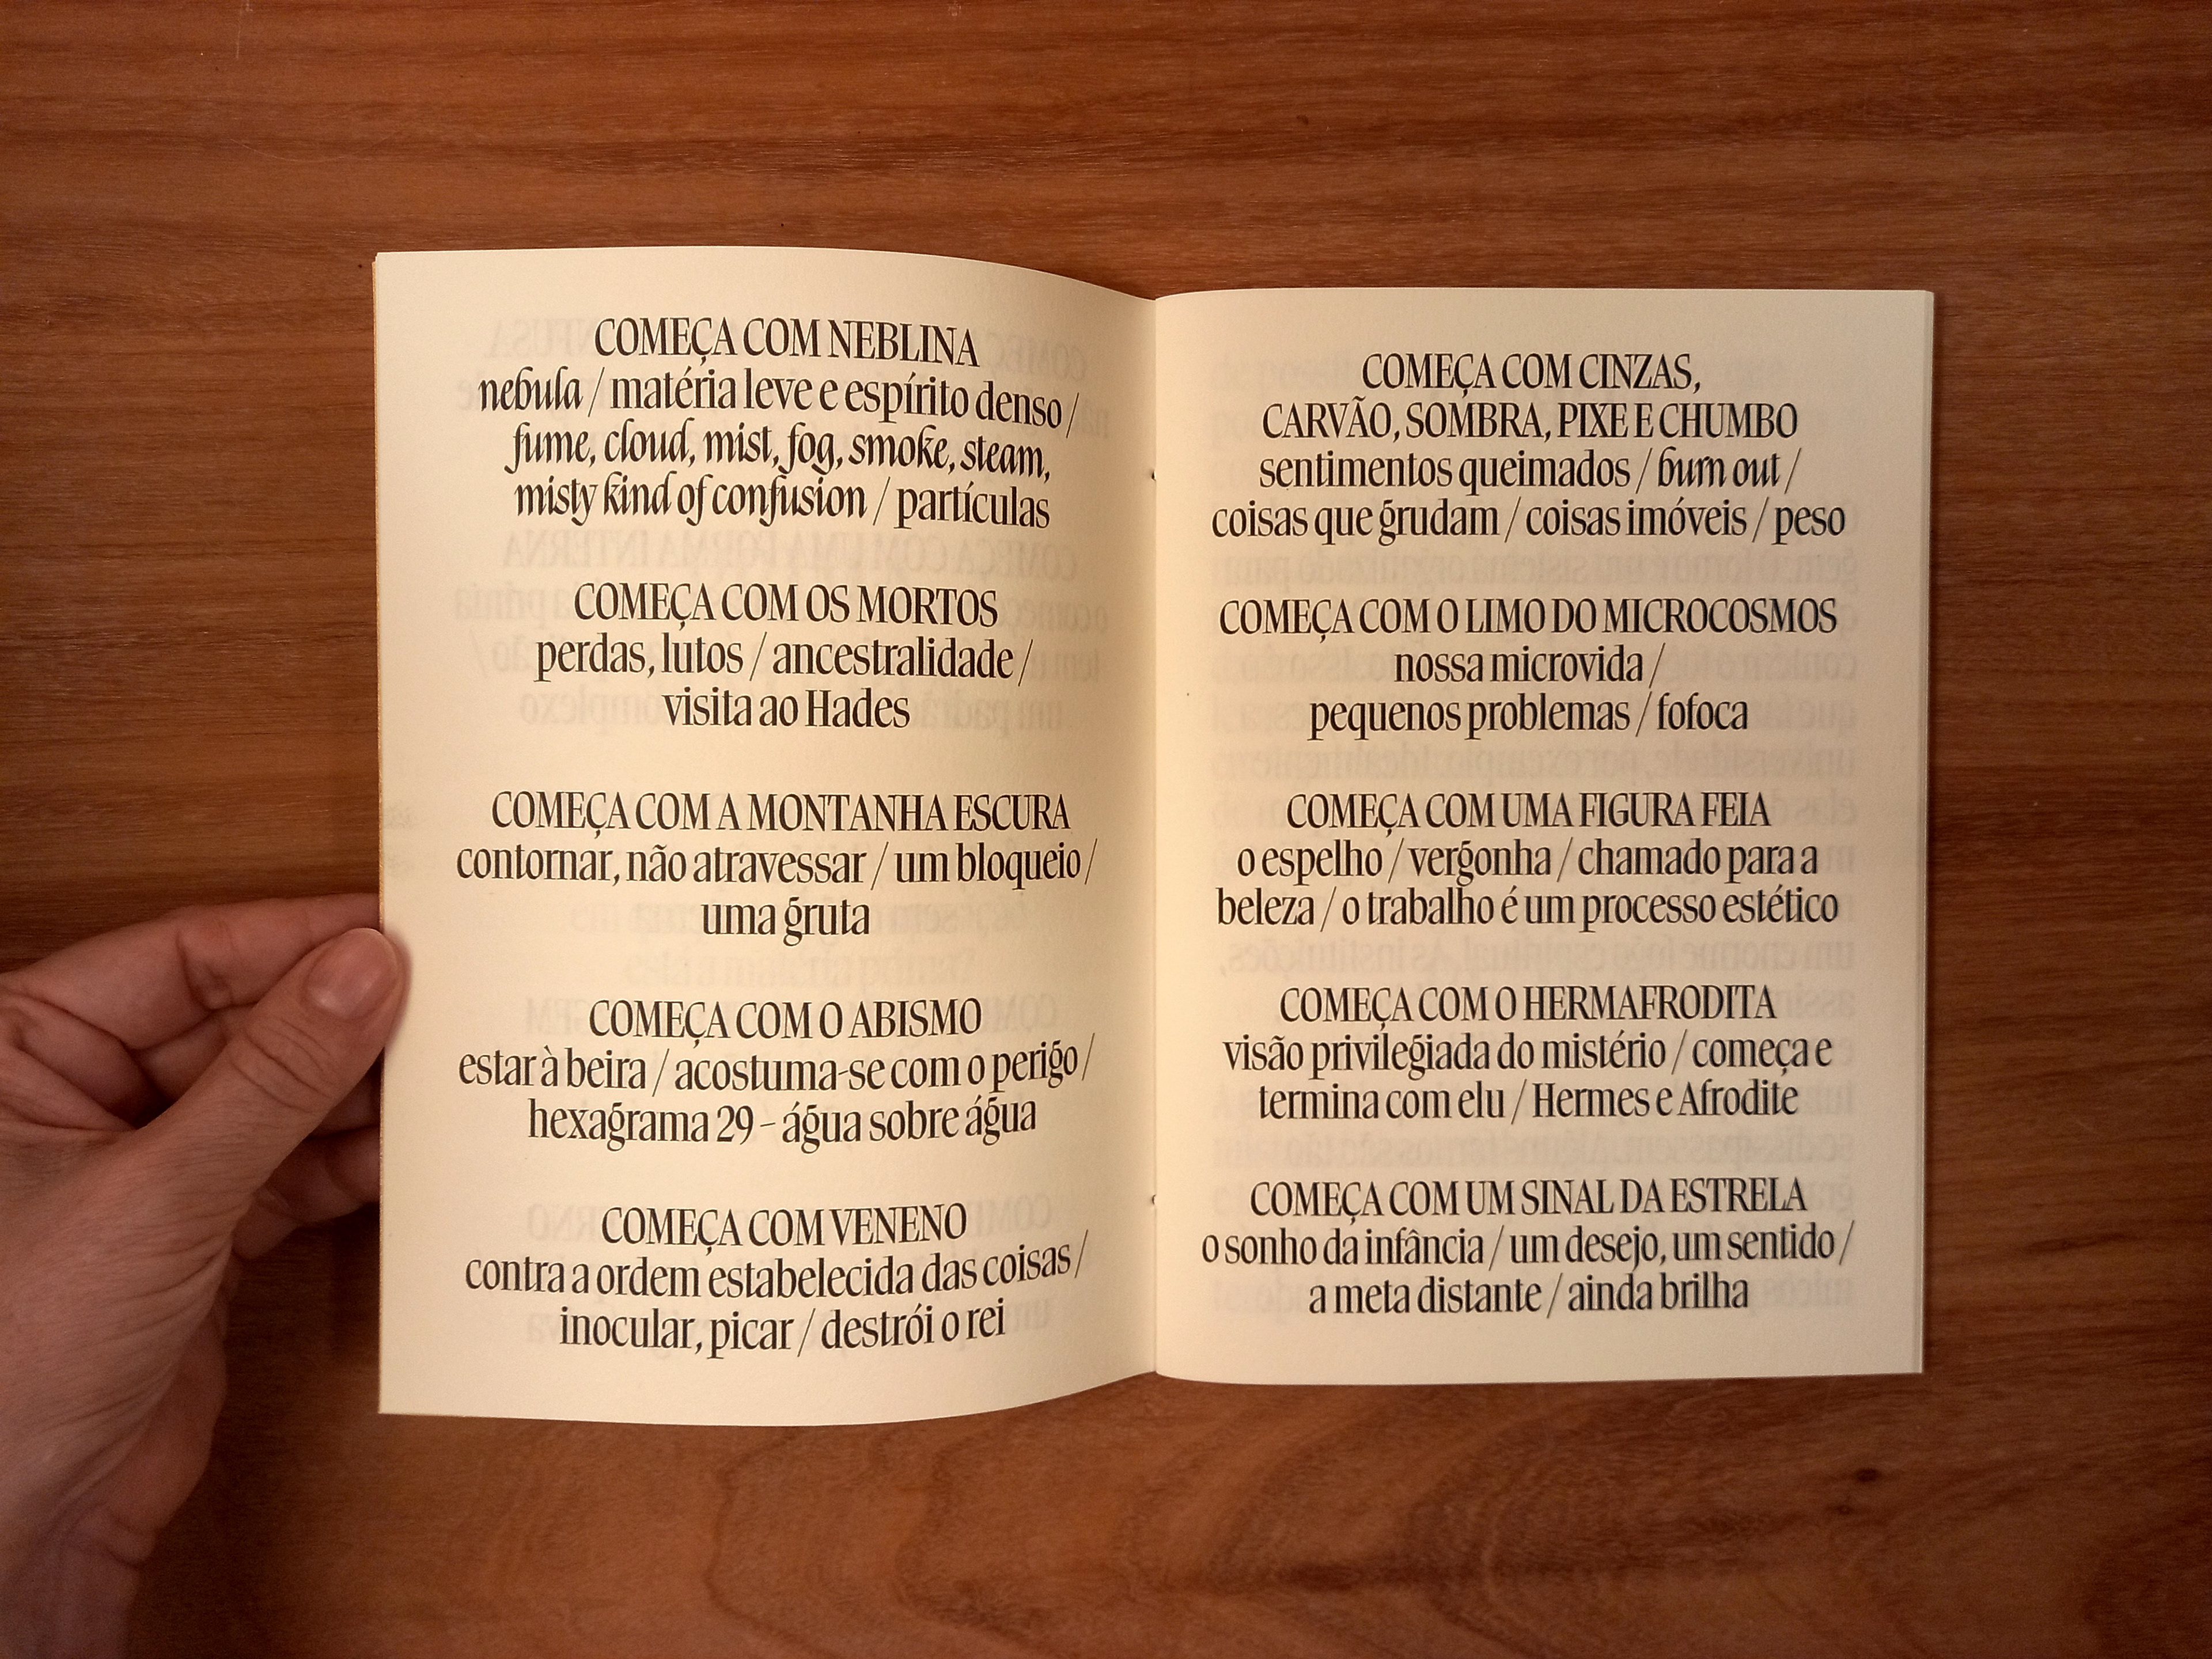 COMEÇA COM NEBLINA
nebula / matéria leve e espírito denso /
fume, cloud, mist, fog, smoke, steam,
misty kind of confusion / partículas
COMEÇA COM OS MORTOS
perdas, lutos / ancestralidade /
visita ao Hades
COMEÇA COM A MONTANHA ESCURA
contornar, não atravessar / um bloqueio /
uma gruta
COMEÇA COM O ABISMO
estar à beira / acostuma-se com o perigo /
hexagrama 29 – água sobre água
COMEÇA COM VENENO
contra a ordem estabelecida das coisas /
inocular, picar / destrói o rei
COMEÇA COM CINZAS,
CARVÃO, SOMBRA, PIXE E CHUMBO
sentimentos queimados / burn out /
coisas que grudam / coisas imóveis / peso
COMEÇA COM O LIMO DO MICROCOSMOS
nossa microvida /
pequenos problemas / fofoca
COMEÇA COM UMA FIGURA FEIA
o espelho / vergonha / chamado para a
beleza / o trabalho é um processo estético
COMEÇA COM O HERMAFRODITA
visão privilegiada do mistério / começa e
termina com elu / Hermes e Afrodite
COMEÇA COM UM SINAL DA ESTRELA
o sonho da infância / um desejo, um sentido /
a meta distante / ainda brilha